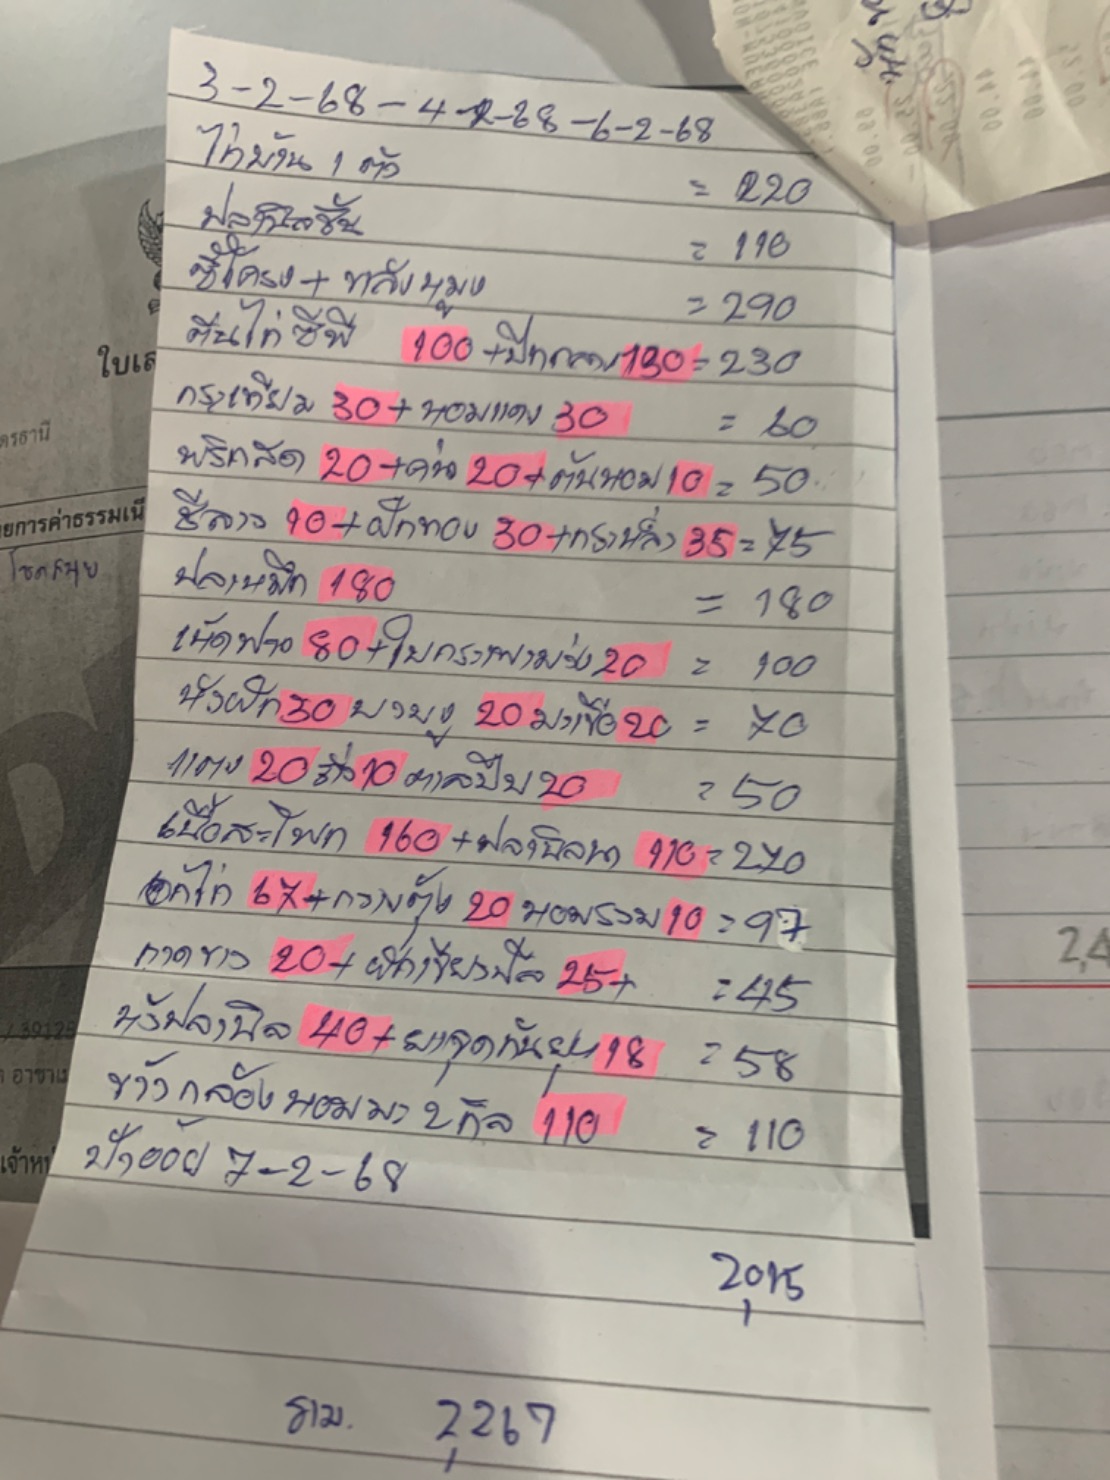 3-2-68-4-2-68-6-2-68
ไก่บ้าน 1 ตัว = 220
ปลานิลชิ้น = 110
ซี่โครง + หลังหมู = 290
ตีนไก่ซีพี 100 + ปีกกลาง 130 = 230
กระเทียม 30 + หอมแดง 30 = 60
พริกสด 20 + 20 + ต้นหอม 10 = 50
ชีลาว 10 + ฟักทอง 30 + กระหล่ำ 35 = 75
ปลาหมึก 180 = 180
เห็ดฟาง 80 + ใบกระเพรา 20 = 100
ถั่วฝัก 30 บวบงู 20 มะเขือ 20 = 70
แตง 20 10 20 = 50
เนื้อสะโพก 160 + ปลานิล 110 = 270
อกไก่ 67 + กวางตุ้ง 20 หอมรวม 10 = 97
กาดขาว 20 + ฟักเขียว 25+ = 45
หัวปลานิล 40 + ยาจุดกันยุง 18 = 58
ข้าวกล้องหอมมะ 2 กิโล 110 = 110
ป้าอ้อย 7-2-68
2,015
รวม. 2,267
ใบเส
ยการค่าธรรมเนี
โชคสมุย
/ 39125
อาชา
เจ้าหน
2,4